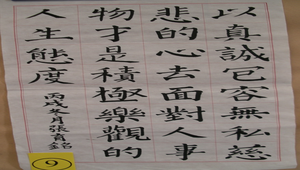 以真誠包容無私慈
悲的心去面對人事
物才是積極樂觀的
人生態度
丙戌冬月張育銘
9